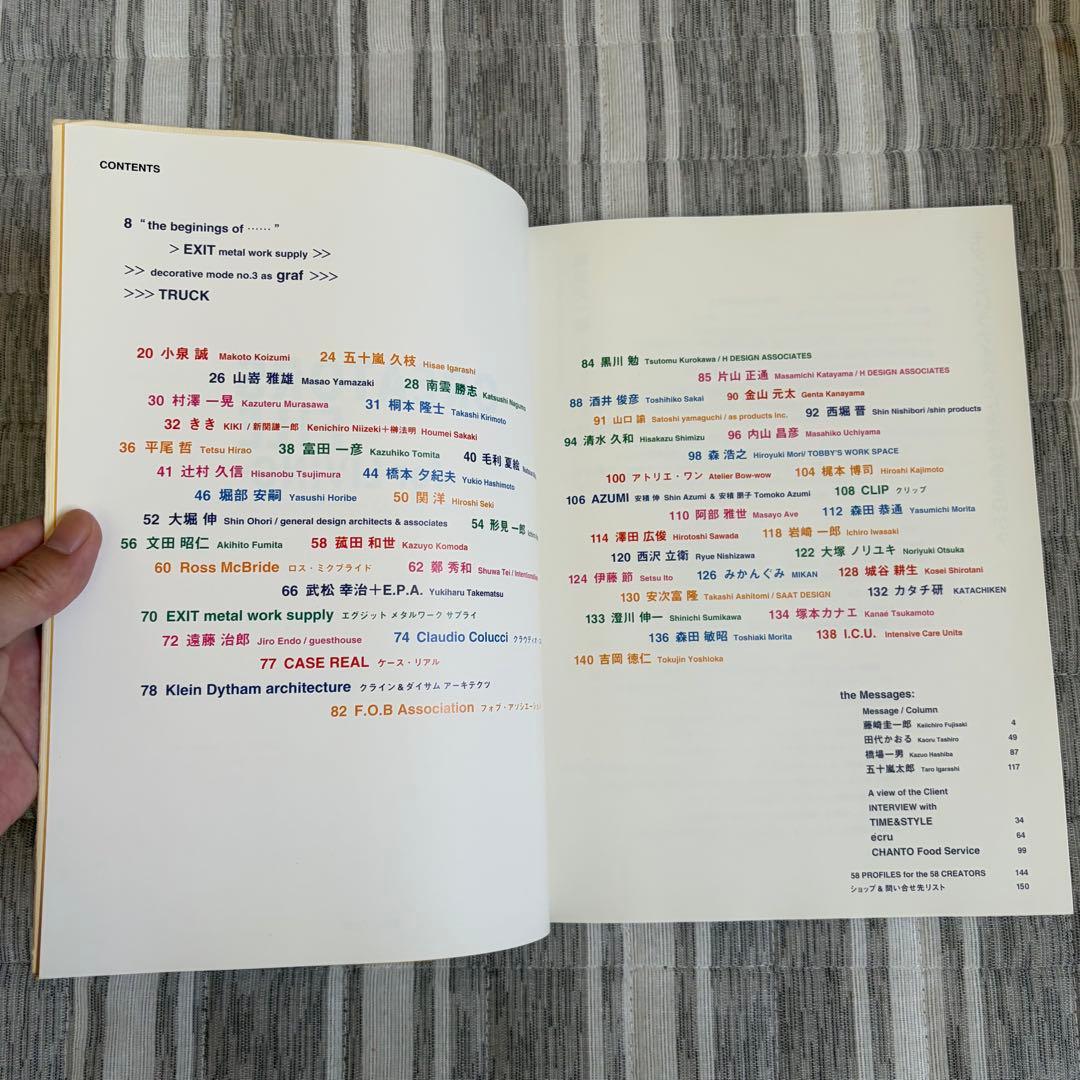 CONTENTS
8 “the beginings of ……”
> EXIT metal work supply >>
>> decorative mode no.3 as graf >>>
>>> TRUCK
20 小泉 誠 Makoto Koizumi 24 五十嵐 久枝 Hisae Igarashi
26 山嵜 雅雄 Masao Yamazaki 28 南雲 勝志 Katsushi Nagumo
30 村澤 一晃 Kazuteru Murasawa 31 桐本 隆士 Takashi Kirimoto
32 きき KIKI / 新関謙一郎 Kenichiro Niizeki＋榊法明 Houmei Sakaki
36 平尾 哲 Tetsu Hirao 38 富田 一彦 Kazuhiko Tomita 40 毛利 夏絵
41 辻村 久信 Hisanobu Tsujimura 44 橋本 夕紀夫 Yukio Hashimoto
46 堀部 安嗣 Yasushi Horibe 50 関 洋 Hiroshi Seki
52 大堀 伸 Shin Ohori / general design architects & associates 54 形見 一郎
56 文田 昭仁 Akihito Fumita 58 菰田 和世 Kazuyo Komoda
60 Ross McBride ロス・ミクブライド 62 鄭 秀和 Shuwa Tei /
66 武松 幸治＋E.P.A. Yukiharu Takematsu
70 EXIT metal work supply エグジット メタルワーク サプライ
72 遠藤 治郎 Jiro Endo / guesthouse 74 Claudio Colucci
77 CASE REAL ケース・リアル
78 Klein Dytham architecture クライン＆ダイサム アーキテクツ
82 F.O.B Association
84 黒川 勉 Tsutomu Kurokawa / H DESIGN ASSOCIATES
85 片山 正通 Masamichi Katayama / H DESIGN ASSOCIATES
88 酒井 俊彦 Toshihiko Sakai 90 金山 元太 Genta Kanayama
91 山口 諭 Satoshi yamaguchi / as products Inc. 92 西堀 晋 Shin Nishibori /shin products
94 清水 久和 Hisakazu Shimizu 96 内山 昌彦 Masahiko Uchiyama
98 森 浩之 Hiroyuki Mori/ TOBBY'S WORK SPACE
100 アトリエ・ワン Atelier Bow-wow 104 梶本 博司 Hiroshi Kajimoto
106 AZUMI 安積 伸 Shin Azumi & 安積 朋子 Tomoko Azumi 108 CLIP クリップ
110 阿部 雅世 Masayo Ave 112 森田 恭通 Yasumichi Morita
114 澤田 広俊 Hirotoshi Sawada 118 岩崎 一郎 Ichiro Iwasaki
120 西沢 立衛 Ryue Nishizawa 122 大塚 ノリユキ Noriyuki Otsuka
124 伊藤 節 Setsu Ito 126 みかんぐみ MIKAN 128 城谷 耕生 Kosei Shirotani
130 安次富 隆 Takashi Ashitomi / SAAT DESIGN 132 カタチ研 KATACHIKEN
133 澄川 伸一 Shinichi Sumikawa 134 塚本カナエ Kanaé Tsukamoto
136 森田 敏昭 Toshiaki Morita 138 I.C.U. Intensive Care Units
140 吉岡 徳仁 Tokujin Yoshioka
the Messages:
Message / Column
藤崎圭一郎 Keiichiro Fujisaki 4
田代かおる Kaoru Tashiro 49
橋場一男 Kazuo Hashiba 87
五十嵐太郎 Taro Igarashi 117
A view of the Client
INTERVIEW with
TIME&STYLE 34
écru 64
CHANTO Food Service 99
58 PROFILES for the 58 CREATORS 144
ショップ＆問い合せ先リスト 150